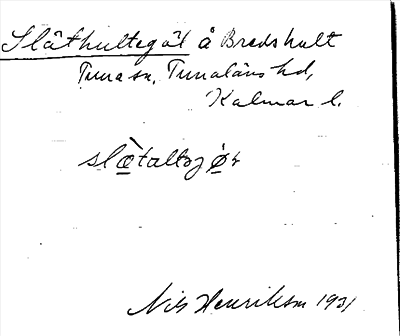 Släthultegöl å Bredshult
Tuna sn, Tunaläns hd,
Kalmar l.
slæ̀taltəjø̀r
Nils Henrikson 1931